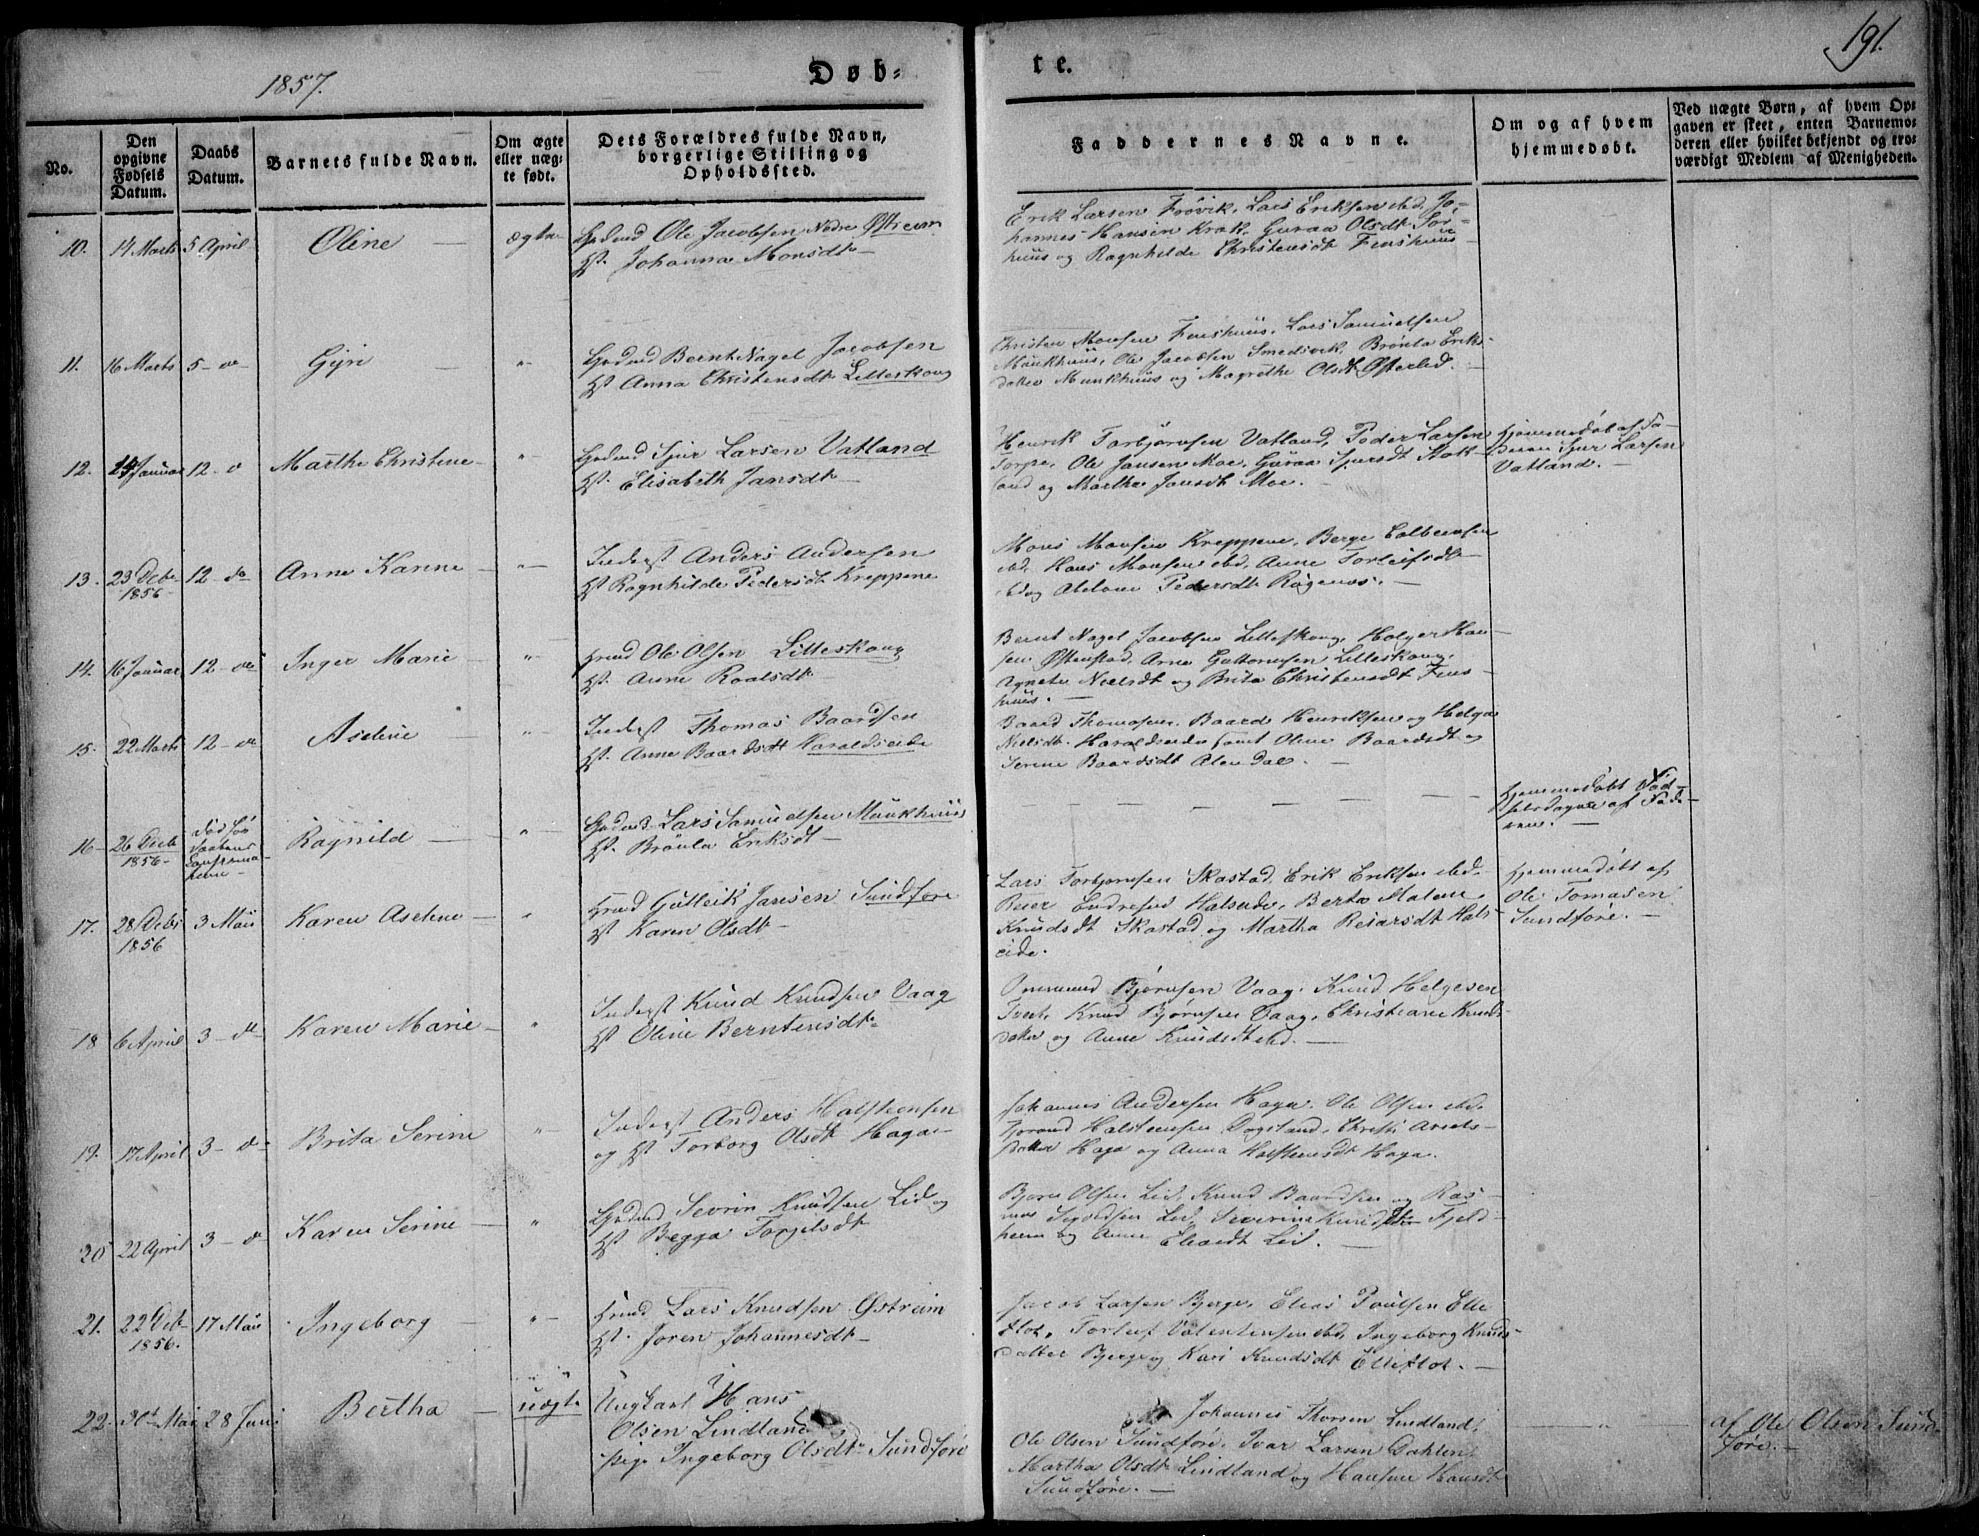 191.
1857.
Døb-
te.
No.
Den opgivne Fødsels Datum.
Daabs Datum.
Barnets fulde Navn.
Om ægte eller uæg-te født.
Dets Forældres fulde Navn, borgerlige Stilling og Opholdssted.
Faddernes Navne.
Om og af hvem hjemmedøbt.
Ved uægte Børn, af hvem Op-
gaven er skeet, enten Barnemo-
deren eller hvilket bekjendt og tro-
værdigt Medlem af Menigheden.
10. 14 Marts 5 April Oline ægte
Ole Jacobsen Nedre Østreim
Johanna Monsdt
Erik Larsen Frövik, Lars Eriksen ibd, Jo-
hannes Hansen Krak, Guraa Olsdt Tor-
huus og Ragnhilde Christensdt Finshuus
11. 16 Marts 5 do Gyri "
Bernt Nagel Jacobsen
Anna Christensdt Litleskoug
Christen Monsen Finshuus, Lars Samuelsen
Munkhuus, Ole Jacobsen Smedsvik, Brönla Eriks-
datter Munkhuus og Magrethe Olsdt Østerlid.
12. Januar 12 do Marthe Christine "
Sjur Larsen Vatland
Elisabeth Jansdt
Henrik Torbjørnsen Vatland, Peder Larsen
Torpe, Ole Jansen Moe, Guraa Sjursdt Stok-
land og Martha Jansdt Moe.
hjemmedøbt af Fa-
deren Sjur Larsen
Vatland.
13. 23 Decbr 1856 12 do Anne Karine "
Inderst Anders Andersen
Ragnhilde Pedersdt Kreppene
Mons Monsen Kreppene, Berge
ibd, Hans Monsen ibd, Anne Torleifsdt
ibd og Abelone Pedersdt
14. 16 Januar 12 do Inger Marie "
Grmd Ole Olsen Litleskoug
Anne Roalsdt
Bernt Nagel Jacobsen Litleskoug, Holger Han-
sen Østenstad, Arne Guttormsen Litleskoug,
Agnete Nielsdt og Brita Christensdt Fins-
huus.
15. 22 Marts 12 do Aseline "
Inderst Thomas Baardsen
Anne Baardsdt Haraldseide
Baard Thomasen, Baard Henriksen og Helga
Nielsdt Haraldseide samt Oline Baardsdt og
Serine Baardsdt Alendal.
16 26 Decb 1856 Ragnild "
Lars Samuelsen Munkhuus
Brönla Eriksdt
hjemmedøbt Fød-
selsdagen af Fade-
ren.
17. 28 Decbr 1856 3 Mai Karen Aseline "
Grmd Gulleik Jansen Sundføre
Karen Olsdt
Lars Torbjørnsen Skastad, Erik Eriksen ibd.
Reier Endresen Halseide, Berta Malene
Knudsdt Skastad og Martha Reiarsdt Hals-
eide.
hjemmedøbt af
Ole Tomasen
Sundføre.
18 6 April 3 do Karen Marie "
Inderst Knud Knudsen Vaag
Oline Berntensdt
Ommund Bjørnsen Vaag, Knud Helgesen
Knud Bjørnsen Vaag, Christiane Knuds-
datter og Anne Knudsdt ibd.
19. 17 April 3 do Brita Serine "
Inderst Anders Halsteensen
og Torborg Olsdt Haga
Johannes Andersen Haga, Ole Olsen ibd,
Halsteensen Dogsland, Christi
datter Haga og Anna Halsteensdt Haga.
20 22 April 3 do Karen Serine "
Sevrin Knudsen Lid og
Begga Torjelsdt
Bjørn Olsen Lid, Knud Baardsen og Ras-
mus Sjursen Lid, Severine Knudsdtr Fjeld-
heim og Anne Lid.
21. 22 Decb 1856. 17 Mai Ingeborg "
Grmd Lars Knudsen Østreim
Joren Johannesdt
Jacob Larsen Bjerge, Elias Poulsen Elle-
flot, Torleif Valentinsen ibd, Ingeborg Knuds-
datter Bjerge og Kari Knudsdt Elleflot.
22. 30t Mai 28 Juni Bertha uægte
Ungkarl Hans
Olsen Lindland
Pige Ingeborg Olsdt Sundføre
Johannes Thorsen Lindland,
Ole Olsen Sundføre, Ivar Larsen Dahlen,
Martha Olsdt Lindland og Hansine Hansdt
Sundføre.
"
af Ole Olsen Sund-
føre.